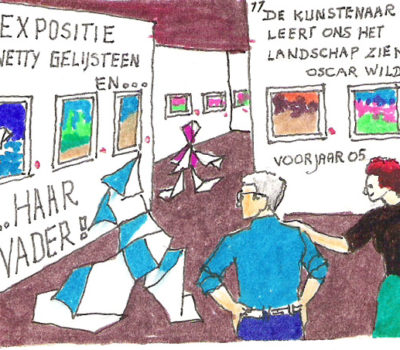 EXPOSITIE
NETTY GELIJSTEEN
EN...
...HAAR
VADER!
"DE KUNSTENAAR
LEERT ONS HET
LANDSCHAP ZIEN
OSCAR WILD
VOORJAAR 05